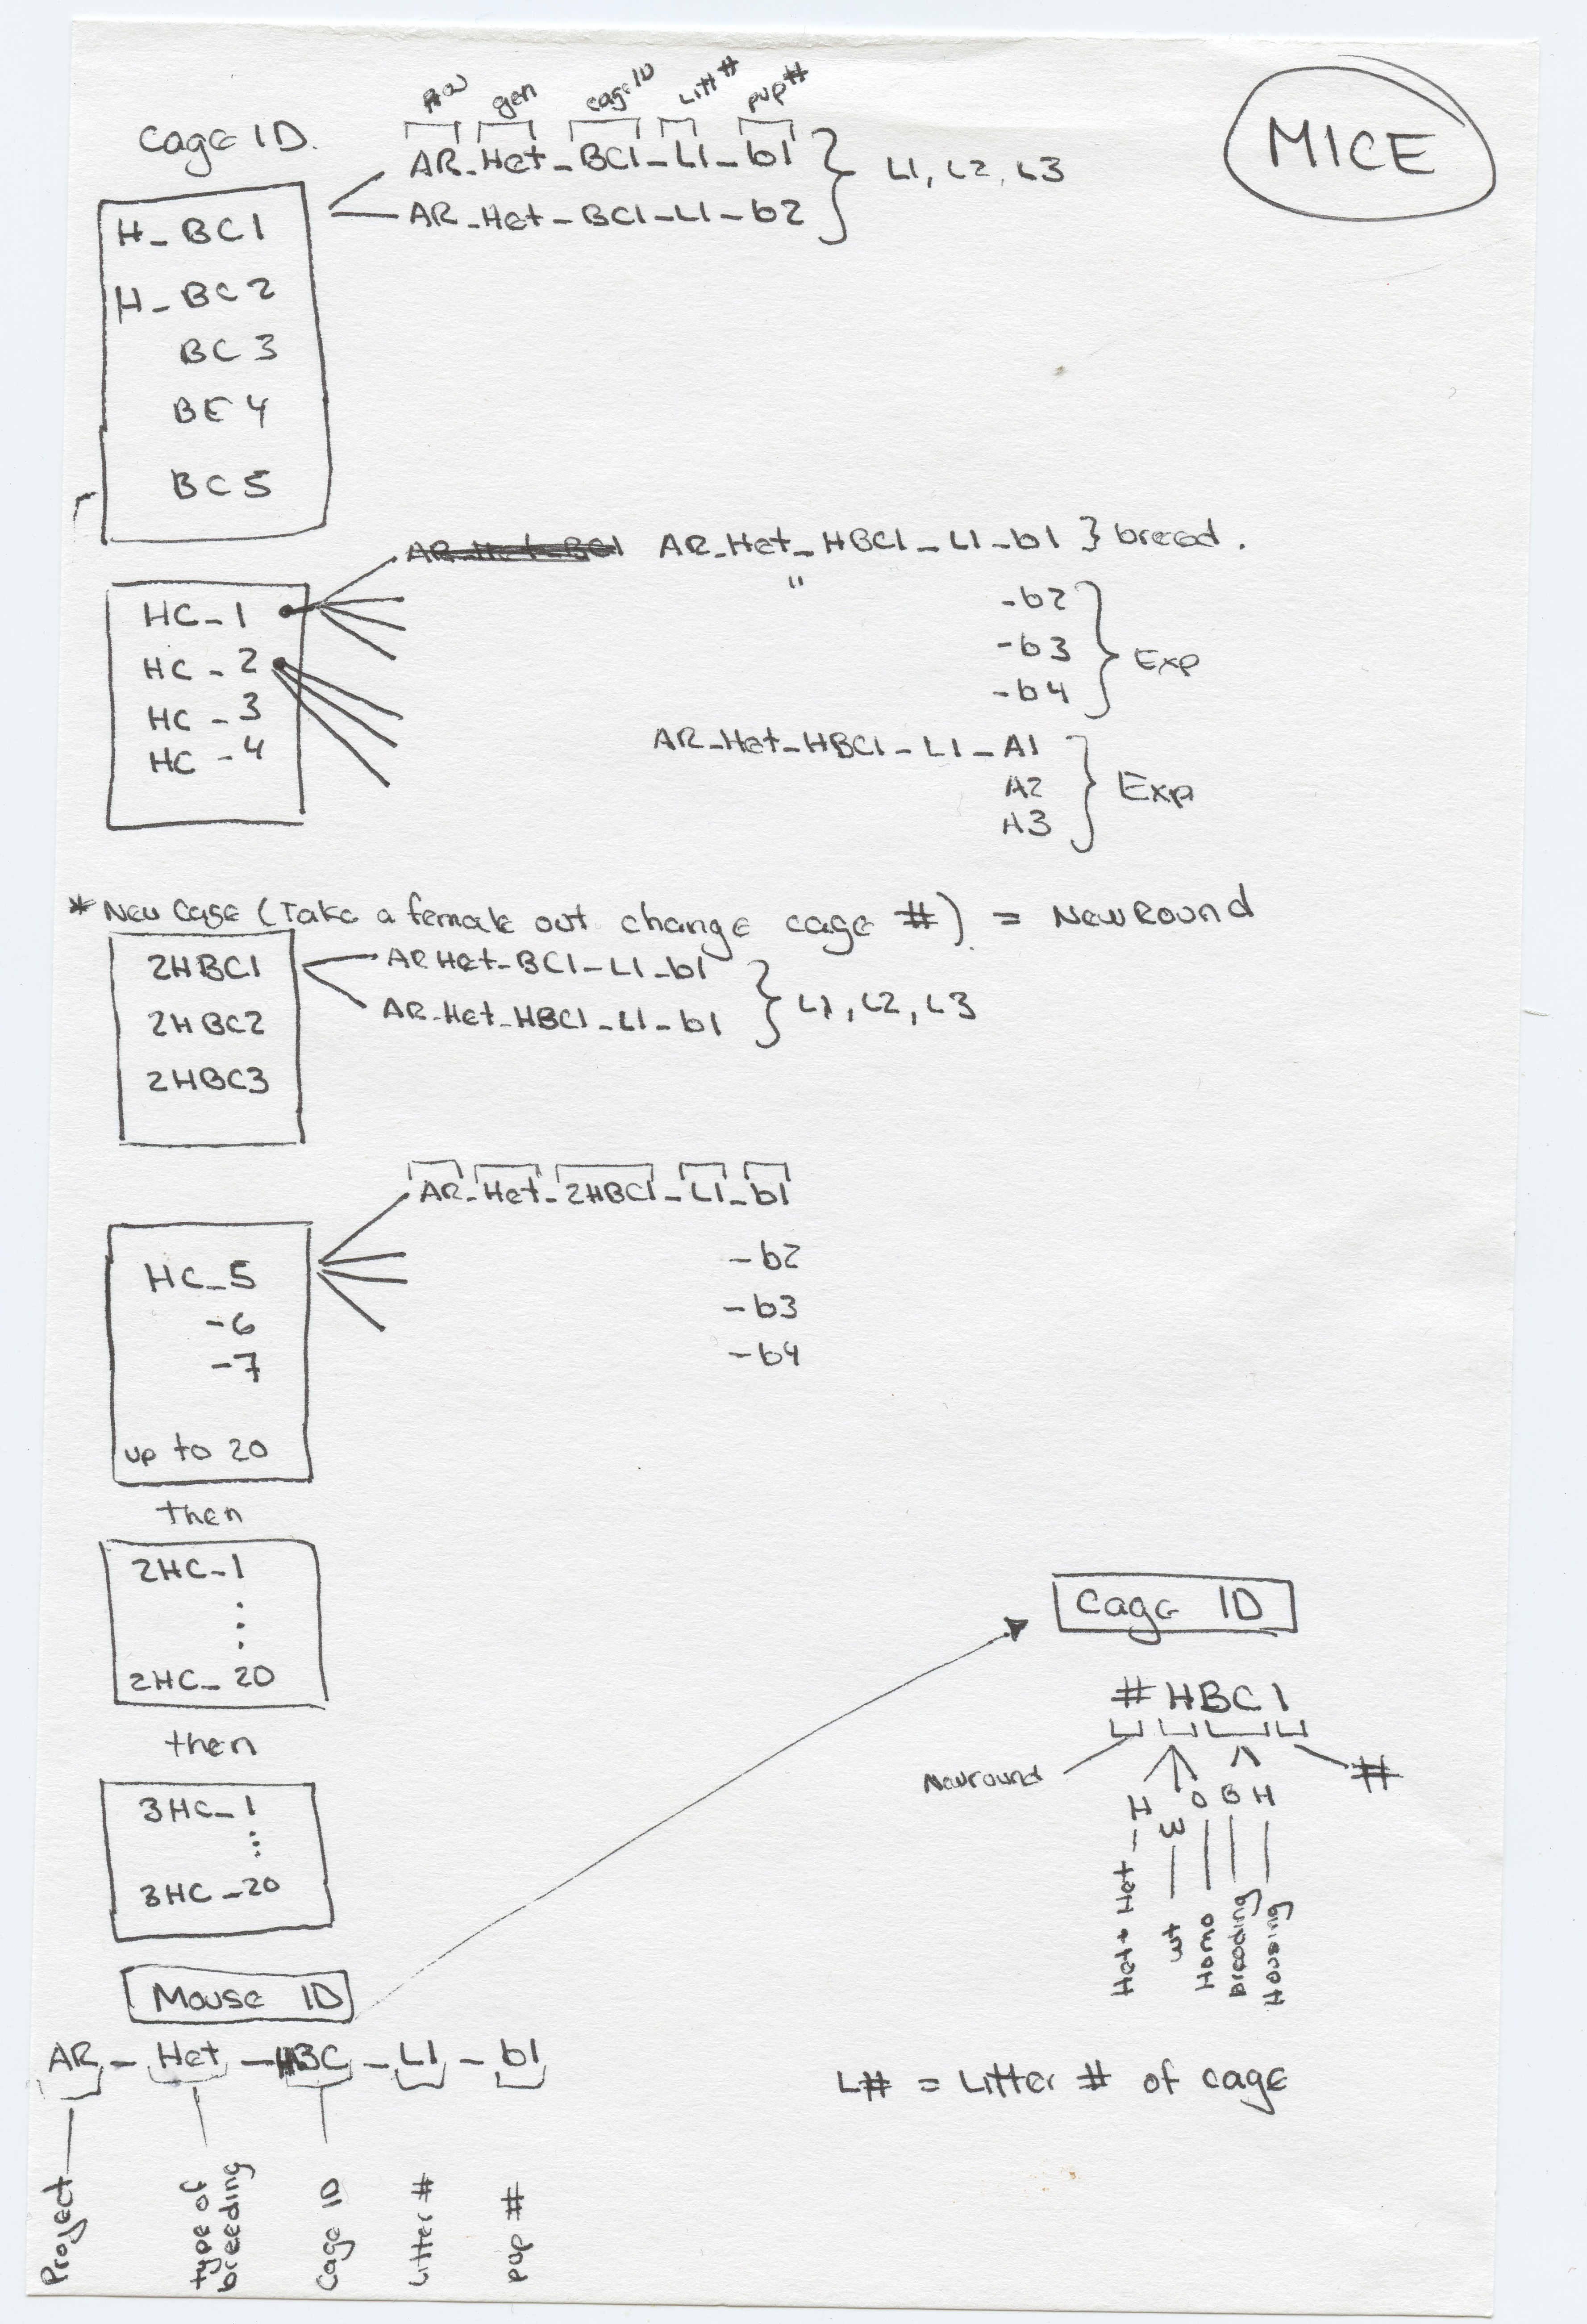 MICE
gen cage ID Litt # pup #
Cage ID.
AR_Het_BC1_L1_b1 } L1, L2, L3
AR_Het_BC1_L1_b2
H_BC1
H_BC2
BC3
BC4
BC5
AR_Het_BC1 AR_Het_HBC1_L1_b1 } breed.
"
HC_1
HC_2
HC_3
HC_4
-b2
-b3 } Exp
-b4
AR_Het_HBC1_L1_A1
A2 } Exp
A3
* New Cage (Take a female out change cage #) = New Round
2HBC1
2HBC2
2HBC3
AR Het_BC1_L1_b1
AR_Het_HBC1_L1_b1 } L1, L2, L3
AR_Het_2HBC1_L1_b1
-b2
-b3
-b4
HC_5
-6
-7
up to 20
then
2HC_1
⋮
2HC_20
then
3HC_1
⋮
3HC_20
Cage ID
#HBC1
New round
H W O B H #
Het + Het
wt
Homo
breeding
Housing
Mouse ID
AR_Het_HBC_L1_b1
Project
type of
breeding
Cage ID
Litter #
pup #
L# = Litter # of cage